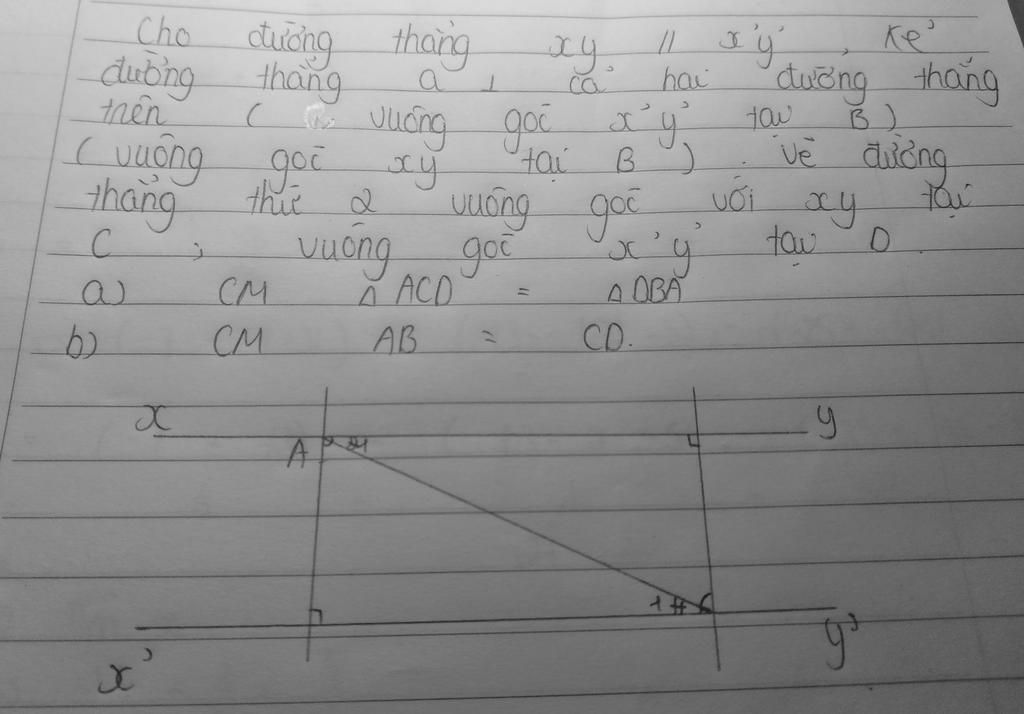 Cho đường thẳng xy // x'y' , Kẻ
đường thẳng a ⊥ cả hai đường thẳng
trên ( vuông góc x'y' tại B )
( vuông góc xy tại B ) . Vẽ đường
thẳng thứ 2 vuông góc với xy tại
C , vuông góc x'y' tại D
a) CM Δ ACD = Δ DBA
b) CM AB = CD.
x y
A
1
x' y'